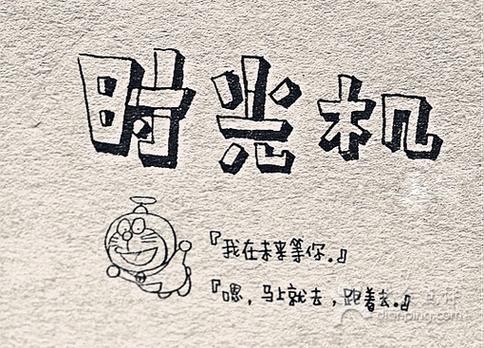 时光机
『我在未来等你.』
『嗯，马上就去，跑着去.』
dianping.com